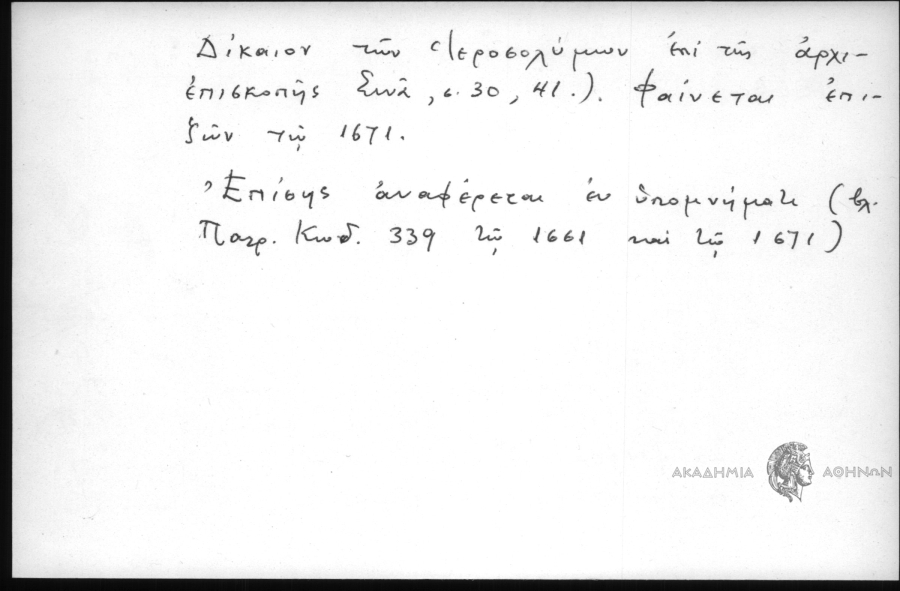 Δίκαιον τῶν Ἱεροσολύμων ἐπὶ τῆς ἀρχι-
ἐπισκοπῆς Σινᾶ, σ. 30, 41.). Φαίνεται ἐπι-
ζῶν τῷ 1671.
Ἐπίσης ἀναφέρεται ἐν ὑπομνήματι (βλ.
Πατρ. Κωδ. 339 τῷ 1661 καὶ τῷ 1671)
ΑΚΑΔΗΜΙΑ ΑΘΗΝΩΝ